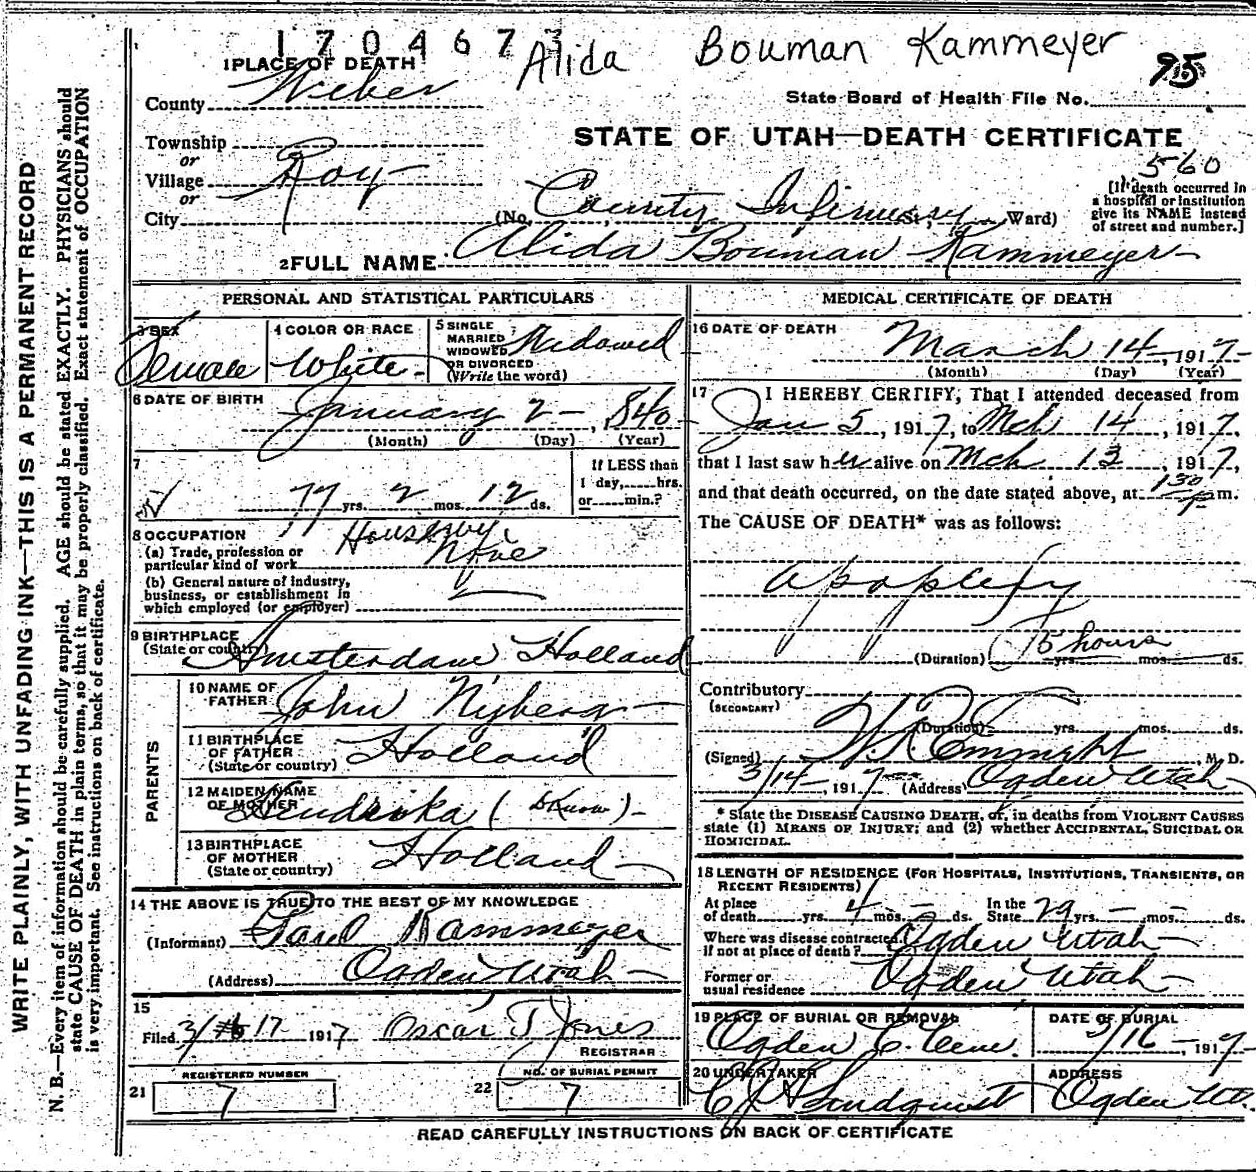 1704673
Alida Bouman Kammeyer
95
1 PLACE OF DEATH
County Weber
State Board of Health File No.
STATE OF UTAH—DEATH CERTIFICATE
Township
or
Village Roy
or
City
560
[If death occurred in
a hospital or institution
give its NAME instead
of street and number.]
(No. County Infirmary, Ward)
2 FULL NAME Alida Bouman Kammeyer
PERSONAL AND STATISTICAL PARTICULARS
3 SEX Female
4 COLOR OR RACE White
5 SINGLE
MARRIED
WIDOWED
OR DIVORCED
(Write the word)
Widowed
6 DATE OF BIRTH
January 2, 1840
(Month) (Day) (Year)
7
77 yrs. 2 mos. 12 ds.
If LESS than
1 day, hrs.
or min.?
8 OCCUPATION
(a) Trade, profession or
particular kind of work
(b) General nature of industry,
business, or establishment in
which employed (or employer)
9 BIRTHPLACE
(State or country)
Amsterdam Holland
PARENTS
10 NAME OF
FATHER
John Nyberg
11 BIRTHPLACE
OF FATHER
(State or country)
Holland
12 MAIDEN NAME
OF MOTHER
Hendrika (
13 BIRTHPLACE
OF MOTHER
(State or country)
Holland
14 THE ABOVE IS TRUE TO THE BEST OF MY KNOWLEDGE
(Informant) Paul Kammeyer
(Address) Ogden Utah
15
Filed 3/17 1917 Oscar T Jones
REGISTRAR
REGISTERED NUMBER
21 7
NO. OF BURIAL PERMIT
22 7
MEDICAL CERTIFICATE OF DEATH
16 DATE OF DEATH
March 14, 1917
(Month) (Day) (Year)
17 I HEREBY CERTIFY, That I attended deceased from
Jan 5, 1917, to Mch 14, 1917,
that I last saw her alive on Mch 13, 1917,
and that death occurred, on the date stated above, at 130 P m.
The CAUSE OF DEATH* was as follows:
apoplexy
(Duration) 15 hours yrs. mos. ds.
Contributory
(SECONDARY)
(Duration) yrs. mos. ds.
(Signed) W. R. Emmght, M. D.
3/14, 1917 (Address) Ogden Utah
* State the DISEASE CAUSING DEATH, or, in deaths from VIOLENT CAUSES
state (1) MEANS OF INJURY; and (2) whether ACCIDENTAL, SUICIDAL OR
HOMICIDAL.
18 LENGTH OF RESIDENCE (FOR HOSPITALS, INSTITUTIONS, TRANSIENTS, OR
RECENT RESIDENTS)
At place
of death yrs. 4 mos. - ds.
In the
State 29 yrs. - mos. - ds.
Where was disease contracted
if not at place of death? Ogden Utah
Former or
usual residence Ogden Utah
19 PLACE OF BURIAL OR REMOVAL
Ogden C. Ceme.
DATE OF BURIAL
3/16, 1917
20 UNDERTAKER
Lindquist
ADDRESS
Ogden Ut.
READ CAREFULLY INSTRUCTIONS ON BACK OF CERTIFICATE
WRITE PLAINLY, WITH UNFADING INK—THIS IS A PERMANENT RECORD
N. B.—Every item of information should be carefully supplied. AGE should be stated EXACTLY. PHYSICIANS should
state CAUSE OF DEATH in plain terms, so that it may be properly classified. Exact statement of OCCUPATION
is very important. See instructions on back of certificate.